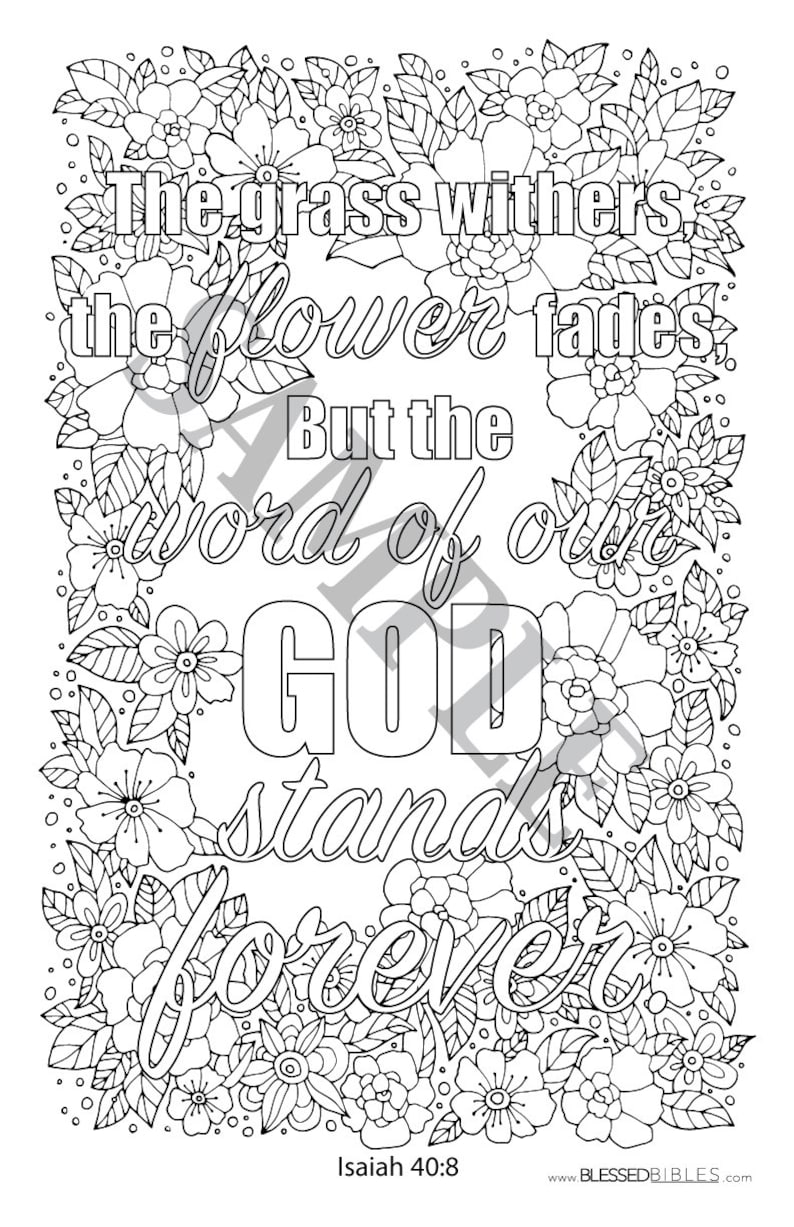 The grass withers,
the flower fades,
But the
word of our
GOD
stands
forever
SAMPLE
Isaiah 40:8
www.BLESSEDBIBLES.com